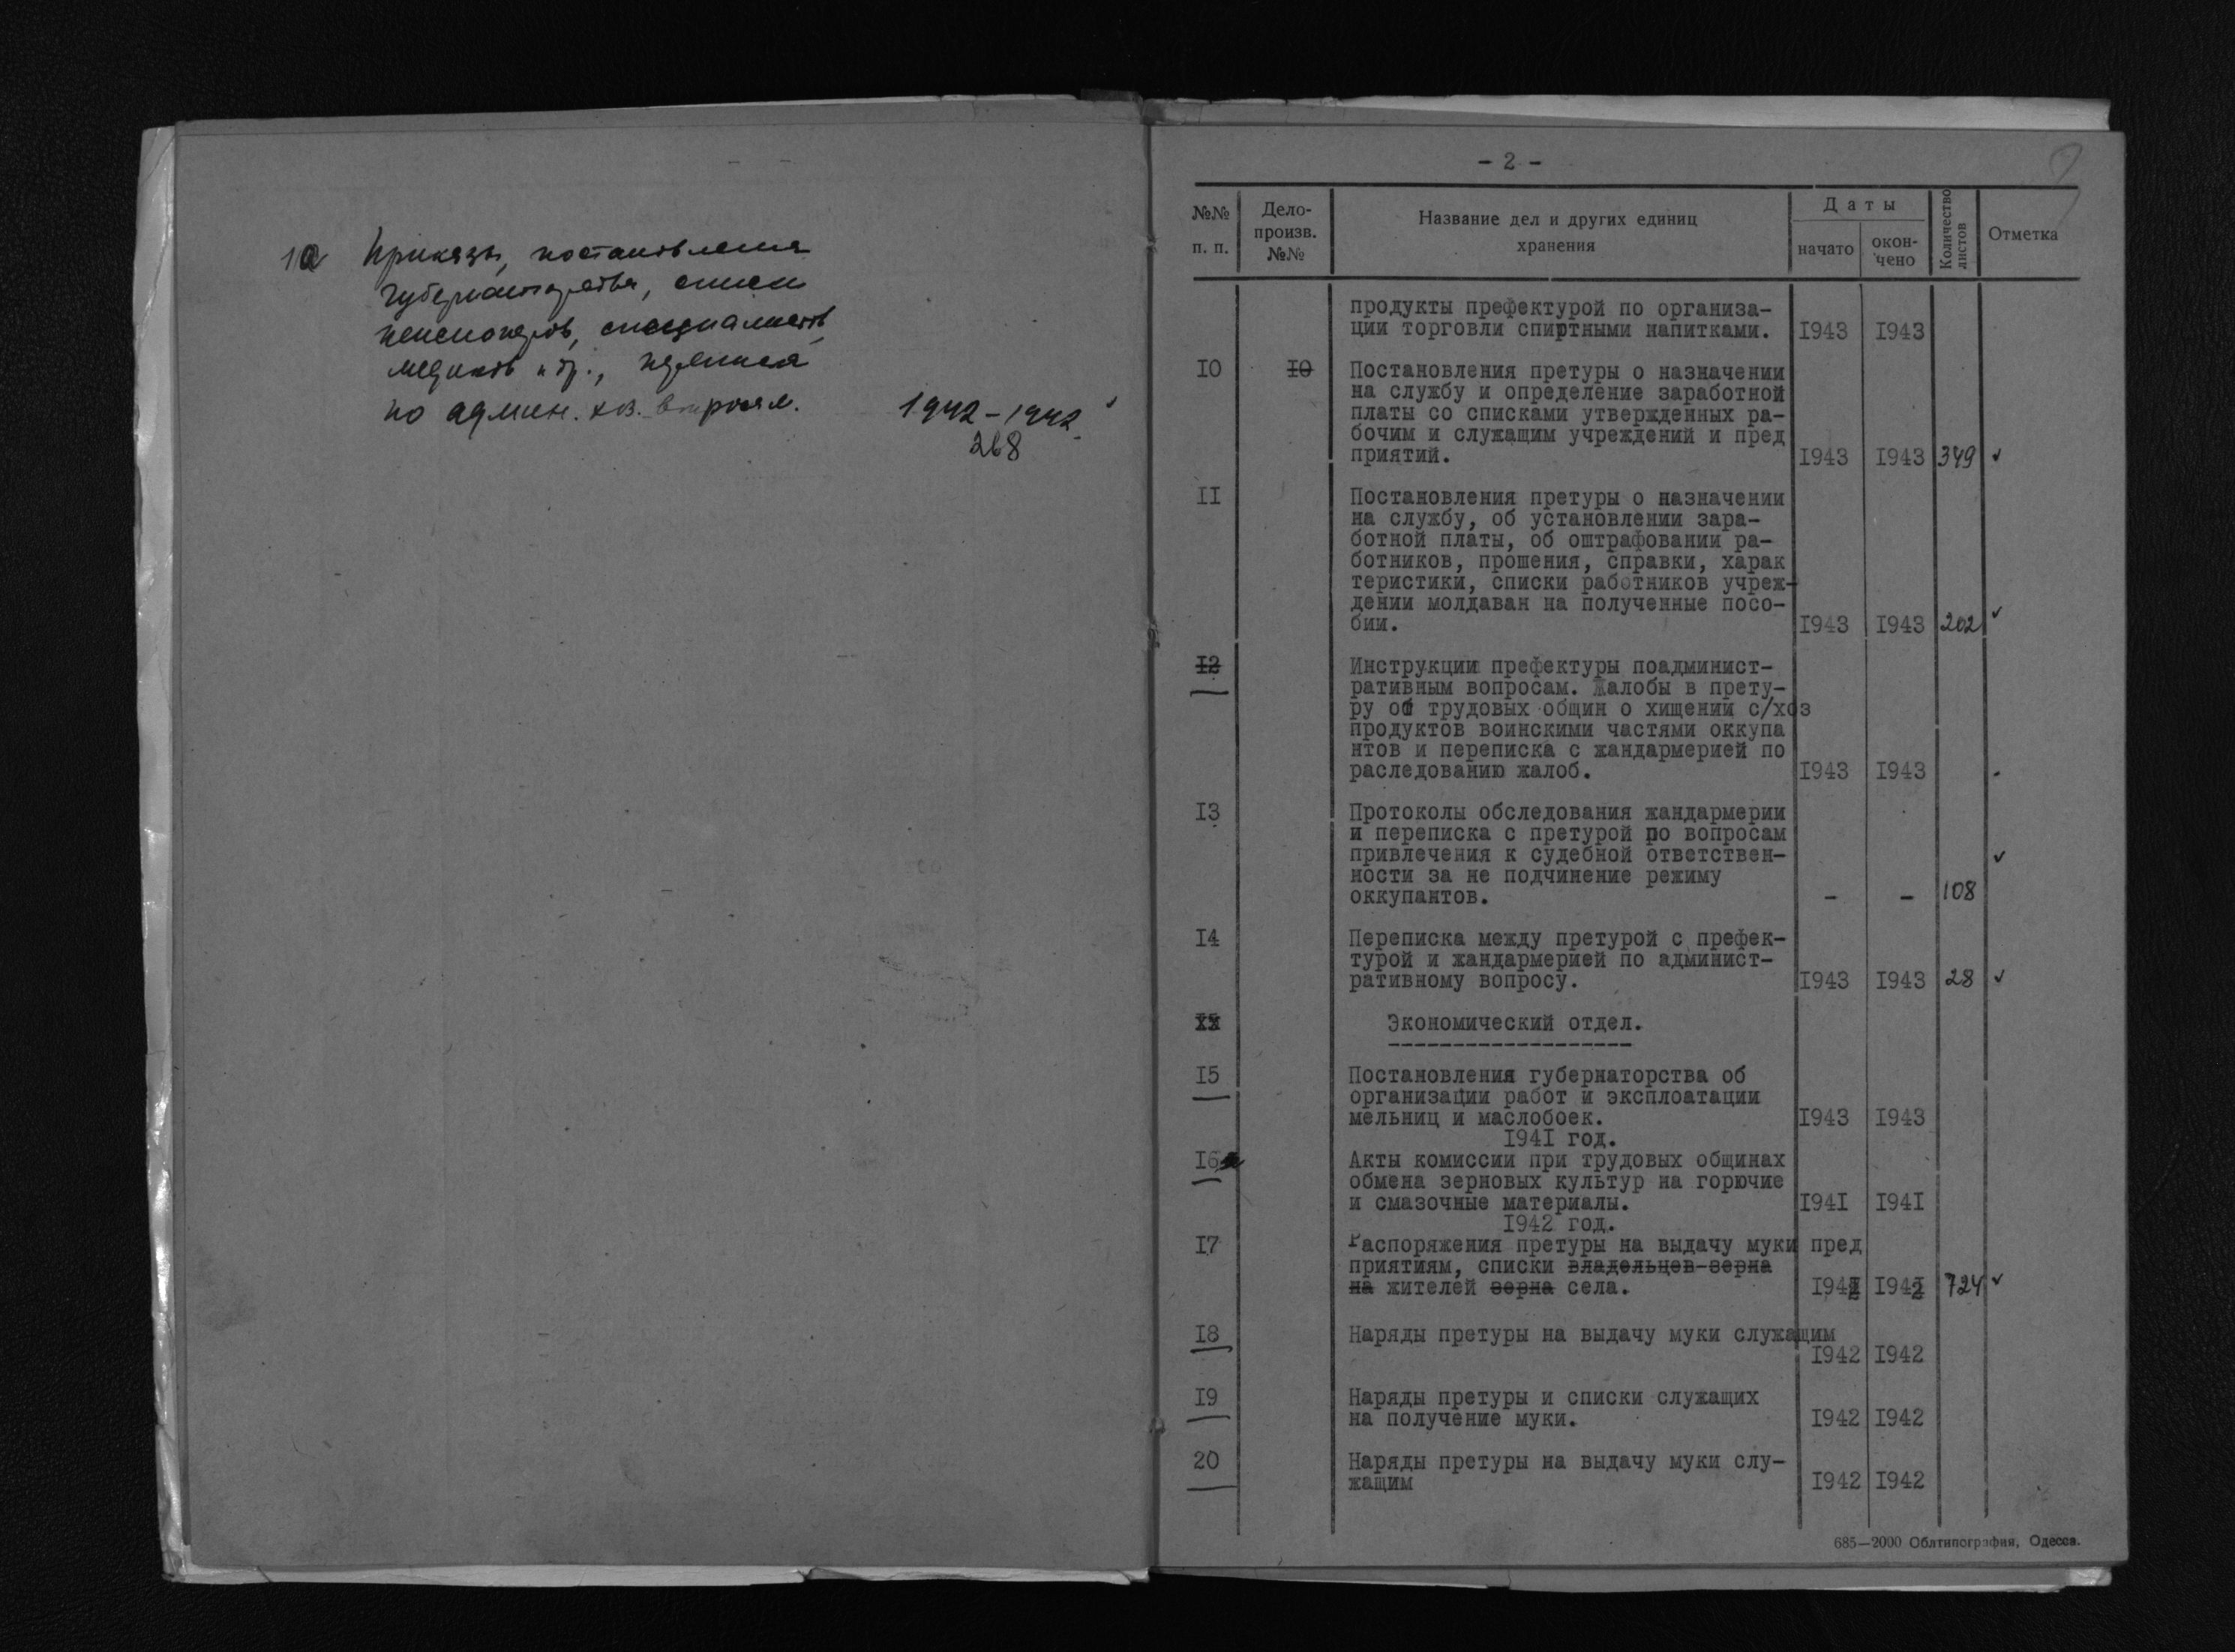 1а Приказы, постановления
губернаторства, списки
пенсионеров, специалистов,
медиков и др., переписка
по админ. хоз. вопросам. 1942-1942
268
- 2 -
№№ п. п. Дело-произв. №№ Название дел и других единиц хранения Даты начато окон-чено Количество листов Отметка
продукты префектурой по организа-
ции торговли спиртными напитками. 1943 1943
IO IO Постановления претуры о назначении
на службу и определение заработной
платы со списками утвержденных ра-
бочим и служащим учреждений и пред
приятий. I943 I943 349 ✓
II Постановления претуры о назначении
на службу, об установлении зара-
ботной платы, об оштрафовании ра-
ботников, прошения, справки, харак
теристики, списки работников учреж-
дении молдаван на полученные посо-
бии. I943 I943 202 ✓
I2 Инструкции префектуры поадминист-
ративным вопросам. Жалобы в прету-
ру от трудовых общин о хищении с/хоз
продуктов воинскими частями оккупа
нтов и переписка с жандармерией по
раследованию жалоб. I943 I943
I3 Протоколы обследования жандармерии
и переписка с претурой по вопросам
привлечения к судебной ответствен-
ности за не подчинение режиму
оккупантов. - - 108 ✓
I4 Переписка между претурой с префек-
турой и жандармерией по админист-
ративному вопросу. I943 I943 28 ✓
Экономический отдел.
I5 Постановления губернаторства об
организации работ и эксплоатации
мельниц и маслобоек. I943 I943
I94I год.
I6 Акты комиссии при трудовых общинах
обмена зерновых культур на горючие
и смазочные материалы. I94I I94I
I942 год.
I7 Распоряжения претуры на выдачу муки пред
приятиям, списки владельцев-зерна
на жителей зерна села. I942 I942 724 ✓
I8 Наряды претуры на выдачу муки служащим
I942 I942
I9 Наряды претуры и списки служащих
на получение муки. I942 I942
20 Наряды претуры на выдачу муки слу-
жащим I942 I942
685—2000 Облтипография, Одесса.